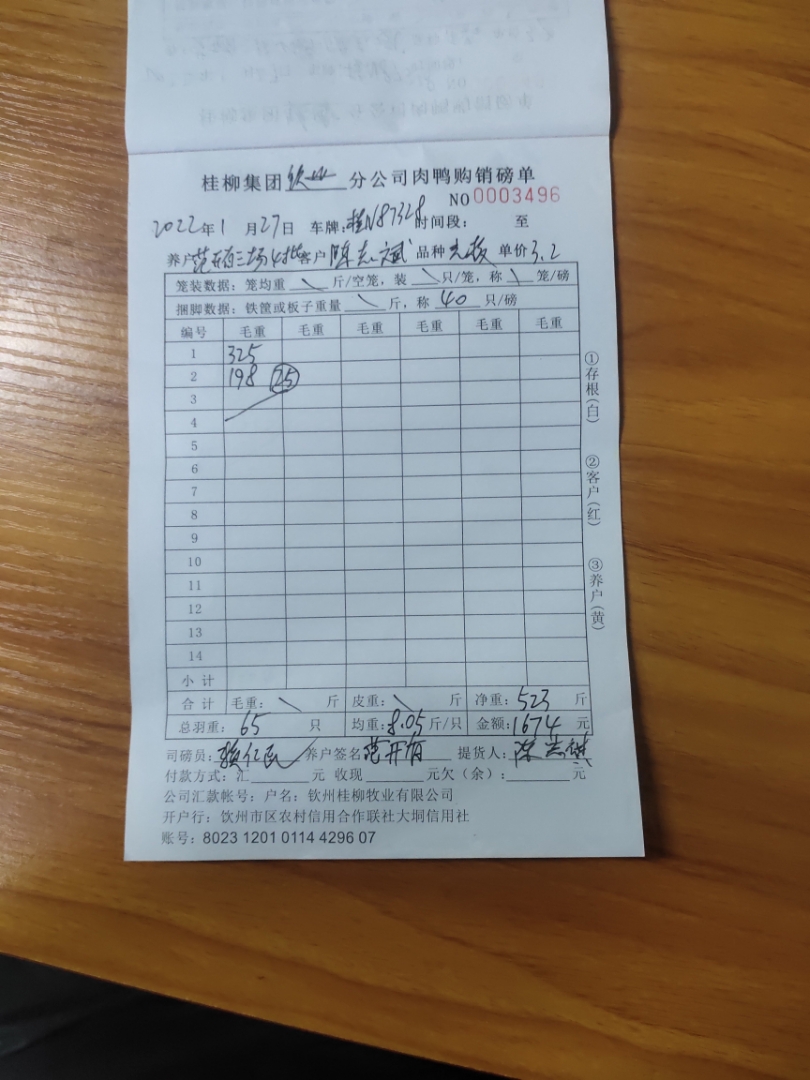 桂柳集团钦州分公司肉鸭购销磅单
NO 0003496
2022年1月27日 车牌:桂N87328时间段: 至
养户范开有三场4批客户陈志斌 品种 单价3.2
笼装数据:笼均重 \ 斤/空笼,装 \ 只/笼,称 \ 笼/磅
捆脚数据:铁筐或板子重量 \ 斤,称 40 只/磅
编号 毛重 毛重 毛重 毛重 毛重 毛重
1 325
2 198 25
3
4
5
6
7
8
9
10
11
12
13
14
小计
合计 毛重: \ 斤 皮重: \ 斤 净重:523 斤
总羽重: 65 只 均重:8.05斤/只 金额:1674 元
司磅员: 养户签名范开有 提货人:陈志斌
付款方式:汇 元 收现 元欠(余): 元
公司汇款帐号:户名:钦州桂柳牧业有限公司
开户行:钦州市区农村信用合作联社大垌信用社
账号:8023 1201 0114 4296 07
①存根(白)
②客户(红)
③养户(黄)